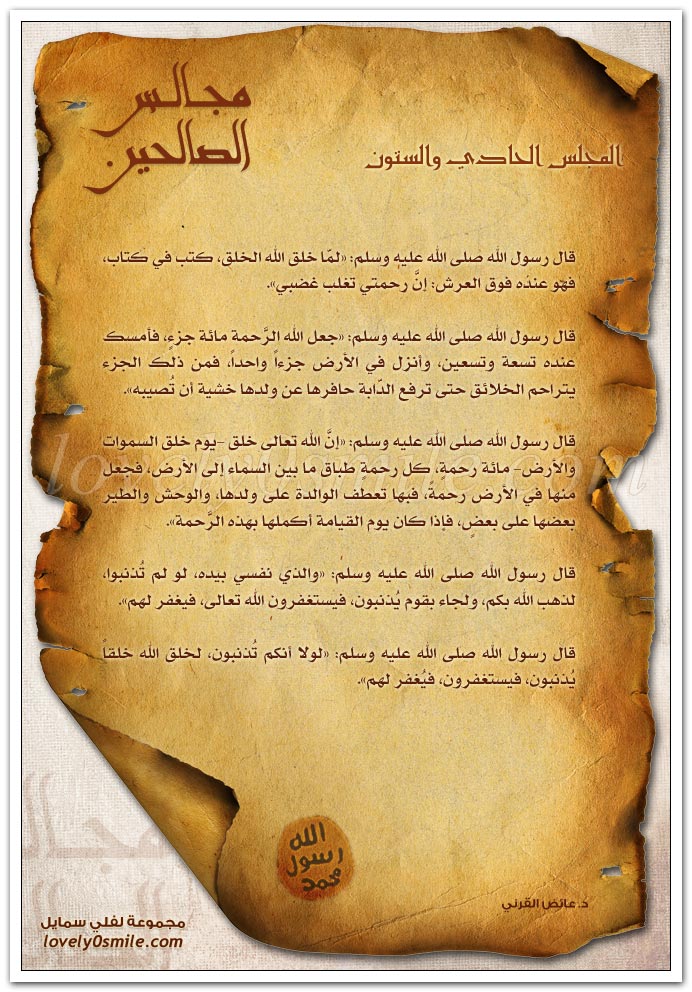 مجالس
الصالحين
المجلس الحادي والستون
قال رسول الله صلى الله عليه وسلم: «لمّا خلق الله الخلق، كتب في كتاب،
فهو عنده فوق العرش: إنَّ رحمتي تغلب غضبي».
قال رسول الله صلى الله عليه وسلم: «جعل الله الرَّحمة مائة جزءٍ، فأمسك
عنده تسعة وتسعين، وأنزل في الأرض جزءاً واحداً، فمن ذلك الجزء
يتراحم الخلائق حتى ترفع الدّابة حافرها عن ولدها خشية أن تُصيبه».
قال رسول الله صلى الله عليه وسلم: «إنَّ الله تعالى خلق -يوم خلق السموات
والأرض- مائة رحمةٍ، كل رحمة طباق ما بين السماء إلى الأرض، فجعل
منها في الأرض رحمةً، فبها تعطف الوالدة على ولدها، والوحش والطير
بعضها على بعضٍ، فإذا كان يوم القيامة أكملها بهذه الرَّحمة».
قال رسول الله صلى الله عليه وسلم: «والذي نفسي بيده، لو لم تُذنبوا،
لذهب الله بكم، ولجاء بقوم يُذنبون، فيستغفرون الله تعالى، فيغفر لهم».
قال رسول الله صلى الله عليه وسلم: «لولا أنكم تُذنبون، لخلق الله خلقاً
يُذنبون، فيستغفرون، فيُغفر لهم».
lovely0smile.com
الله
رسول
محمد
د.عائض القرني
مجموعة لفلي سمايل
lovely0smile.com